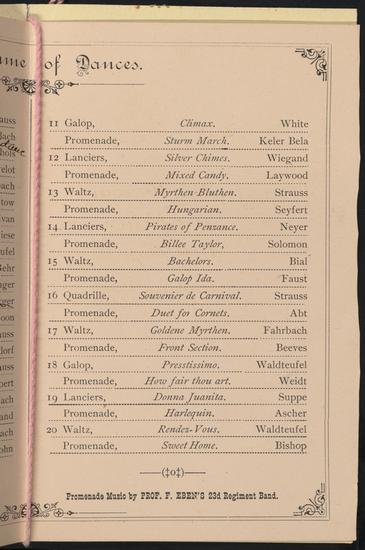 of Dances.
11 Galop, Climax. White
Promenade, Sturm March. Keler Bela
12 Lanciers, Silver Chimes. Wiegand
Promenade, Mixed Candy. Laywood
13 Waltz, Myrthen-Bluthen. Strauss
Promenade, Hungarian. Seyfert
14 Lanciers, Pirates of Penzance. Neyer
Promenade, Billee Taylor, Solomon
15 Waltz, Bachelors. Bial
Promenade, Galop Ida. Faust
16 Quadrille, Souvenier de Carnival. Strauss
Promenade, Duet for Cornets. Abt
17 Waltz, Goldene Myrthen. Fahrbach
Promenade, Front Section. Beeves
18 Galop, Presstissimo. Waldteufel
Promenade, How fair thou art. Weidt
19 Lanciers, Donna Juanita. Suppe
Promenade, Harlequin. Ascher
20 Waltz, Rendez-Vous. Waldteufel
Promenade, Sweet Home. Bishop
—(‡o‡)—
Promenade Music by PROF. F. EBEN'S 23d Regiment Band.